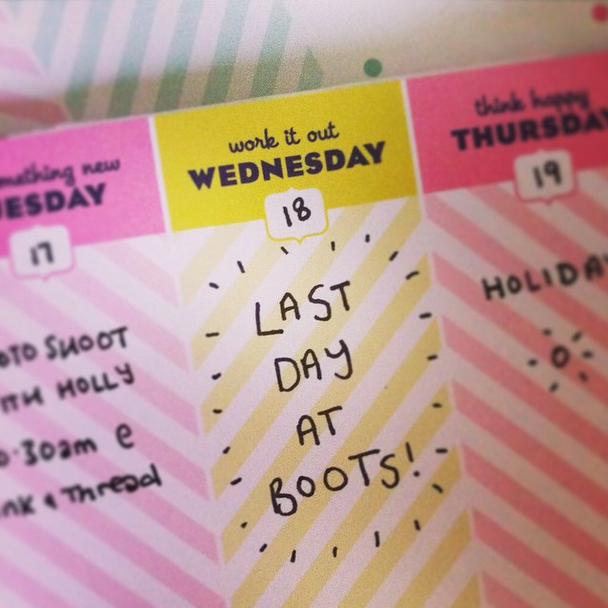 mething new
UESDAY
17
OTO SHOOT
ITH HOLLY
0.30am @
nk & Thread
work it out
WEDNESDAY
18
LAST
DAY
AT
BOOTS!
think happy
THURSDAY
19
HOLIDAY